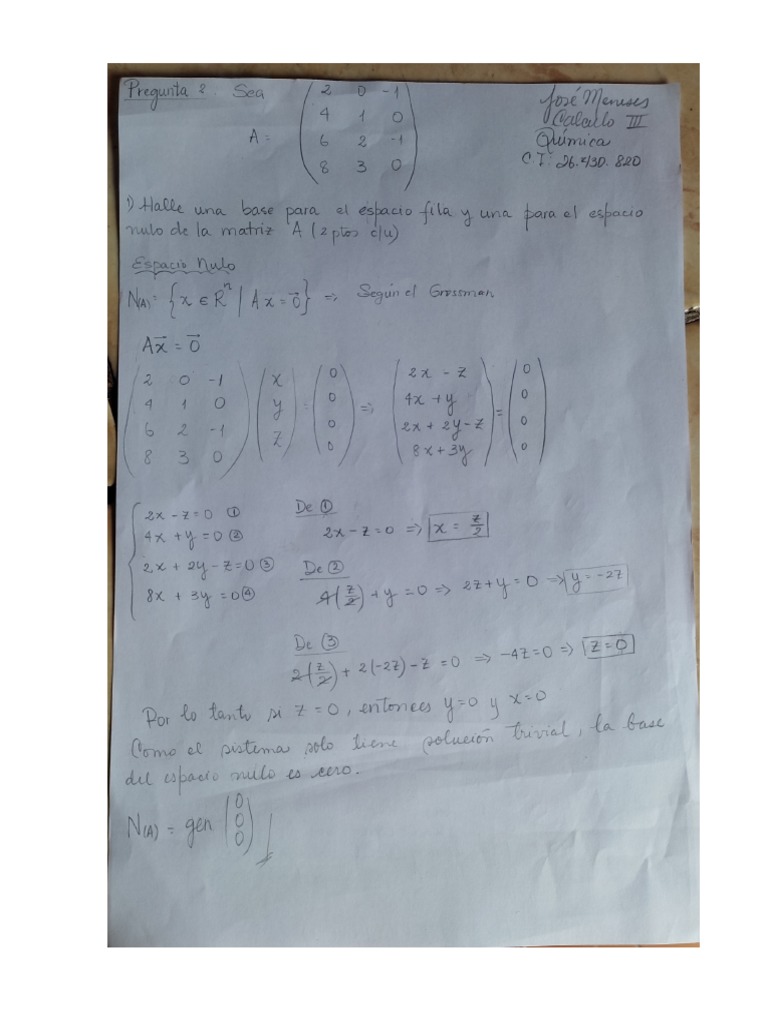 Pregunta 2. Sea
A = ( 2 0 -1
4 1 0
6 2 -1
8 3 0 )
José Meneses
Calculo III
Química
C.I: 26.430.820
1) Halle una base para el espacio fila y una para el espacio
nulo de la matriz A (2 ptos c/u)
Espacio Nulo
N(A) = { x ∈ R^n | Ax = 0⃗ } => Según el Grossman
Ax⃗ = 0⃗
( 2 0 -1 ) ( x ) = ( 0 ) => ( 2x - z ) = ( 0 )
( 4 1 0 ) ( y ) ( 0 ) ( 4x + y ) ( 0 )
( 6 2 -1 ) ( z ) ( 0 ) ( 2x + 2y - z ) ( 0 )
( 8 3 0 ) ( 0 ) ( 8x + 3y ) ( 0 )
2x - z = 0 ①
4x + y = 0 ②
2x + 2y - z = 0 ③
8x + 3y = 0 ④
De ①
2x - z = 0 => x = z/2
De ②
4(z/2) + y = 0 => 2z + y = 0 => y = -2z
De ③
2(z/2) + 2(-2z) - z = 0 => -4z = 0 => z = 0
Por lo tanto si z = 0, entonces y = 0 y x = 0
Como el sistema solo tiene solución trivial, la base
del espacio nulo es cero.
N(A) = gen ( 0
0
0 )